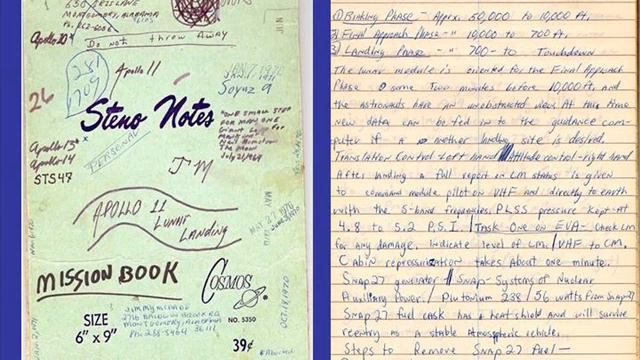 630 ERIE LANE
MONTGOMERY, ALABAMA
Apollo 10
Do not throw away
JUN
281
1704
Apollo 11
JAN 7 1970
Soyuz 9
26
Steno Notes
"ONE SMALL STEP
FOR MAN, ONE
Giant Leap for
MANKIND"
The Moon
July 21/1969
Apollo 13
Apollo 14
STS 47
PERSONAL
JM
MAY 27 1970
APOLLO 11
LUNAR
LANDING
MISSION BOOK
COSMOS
NO. 5350
OCT 18, 1970
SIZE
6" x 9"
39¢
MONTGOMERY, ALABAMA
36111
① Braking Phase - Appx. 50,000 to 10,000 ft.
② Final Approach Phase - " 10,000 to 700 ft.
③ Landing Phase - " 700 - to Touchdown
The lunar module is oriented for the Final Approach
Phase some two minutes before 10,000 ft. and
the astronauts have an unobstructed view. At this time
new data can be fed into the guidance com-
puter if another landing site is desired.
Translation Control - Left hand / Attitude control - right hand
After landing a full report on LM status is given
to command module pilot on VHF and directly to earth
with the S-band frequencies. PLSS pressure kept at
4.8 to 5.2 P.S.I. / Task One on EVA - Check LM
for any damage, indicate level of LM. / VHF to CM.
Cabin repressurization takes about one minute.
Snap 27 generator // Snap - Systems of Nuclear
Auxiliary Power / Plutonium 238 / 56 watts from Snap 27
Snap 27 fuel cask has a heat shield and will survive
reentry as a stable atmospheric vehicle.
Steps to Remove Snap 27 Fuel -